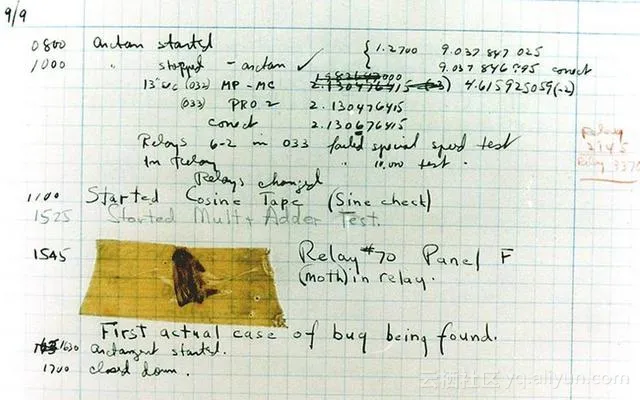 9/9
0800 arctan started { 1.2700 9.037 847 025
1000 " stopped - arctan ✓ 9.037 846 995 correct
13"uc (032) MP - MC 2.130476415 4.615925059(-2)
(033) PRO 2 2.130476415
correct 2.130676415
Relays 6-2 in 033 failed special speed test
in relay " 10.000 test.
Relay
2145
Relay 3370
Relays changed
1100 Started Cosine Tape (Sine check)
1525 Started Mult+ Adder Test.
1545 Relay #70 Panel F
(moth) in relay.
First actual case of bug being found.
1630 arctangent started.
1700 closed down.
云栖社区 yq.aliyun.com